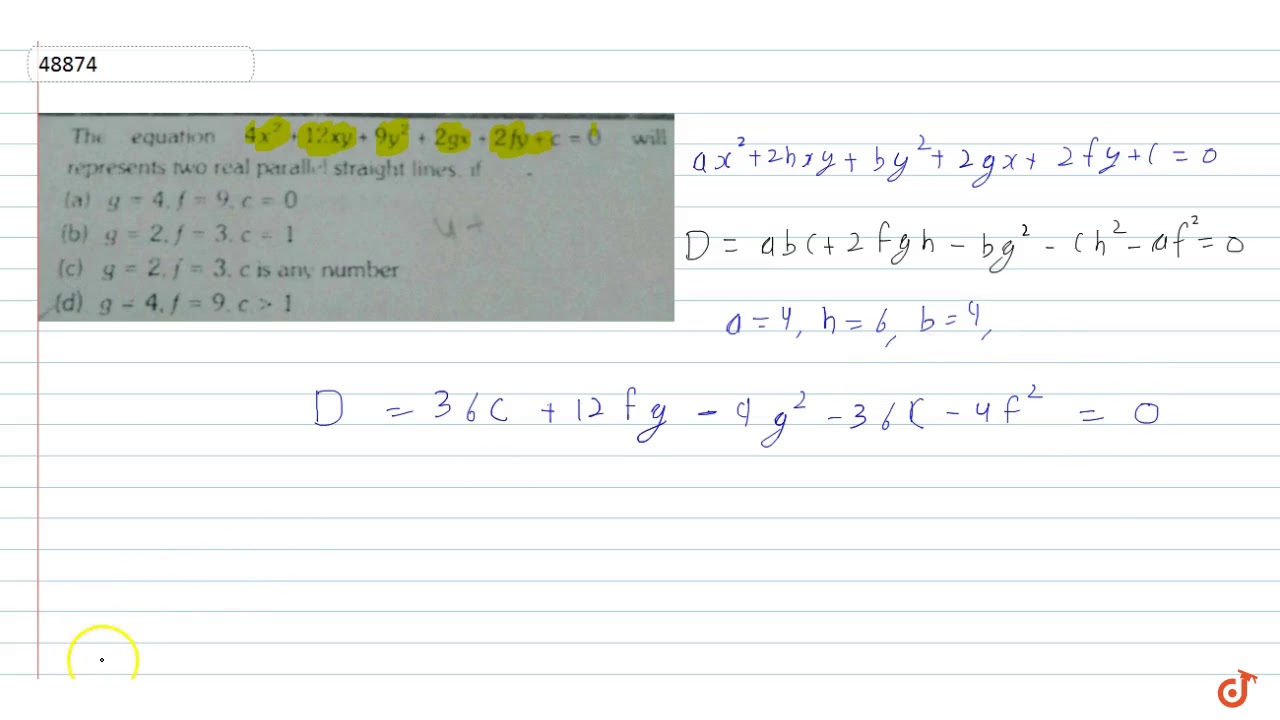 48874
The equation 4x² + 12xy + 9y² + 2gx + 2fy + c = 0 will
represents two real parallel straight lines, if
(a) g = 4, f = 9, c = 0
(b) g = 2, f = 3, c = 1
(c) g = 2, f = 3, c is any number
(d) g = 4, f = 9, c > 1
ax² + 2hxy + by² + 2gx + 2fy + c = 0
D = abc + 2fgh - bg² - ch² - af² = 0
a = 4, h = 6, b = 9,
D = 36c + 12fg - 9g² - 36c - 4f² = 0